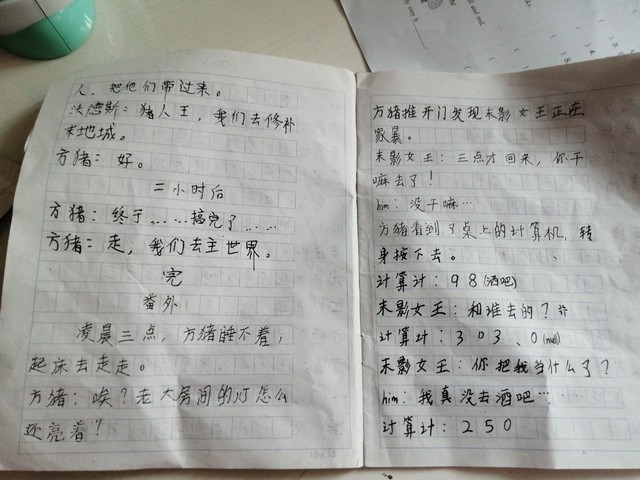 人，把他们带过来。
沃德斯：猪人王，我们去修补
本地城。
方猪：好。
二小时后
方猪：终于……搞完了……
方猪：走，我们去主世界。
完
番外
凌晨三点，方猪睡不着，
起床去走走。
方猪：唉？老大房间的灯怎么
还亮着？
方猪推开门发现末影女王正在
家暴。
末影女王：三点才回来，你干
嘛去了！
him：没干嘛…
方猪看到了桌上的计算机，转
身按下去。
计算计：98(酒吧)
末影女王：和谁去的？
计算计：303、0
末影女王：你把我当什么了？
him：我真没去酒吧…
计算计：250